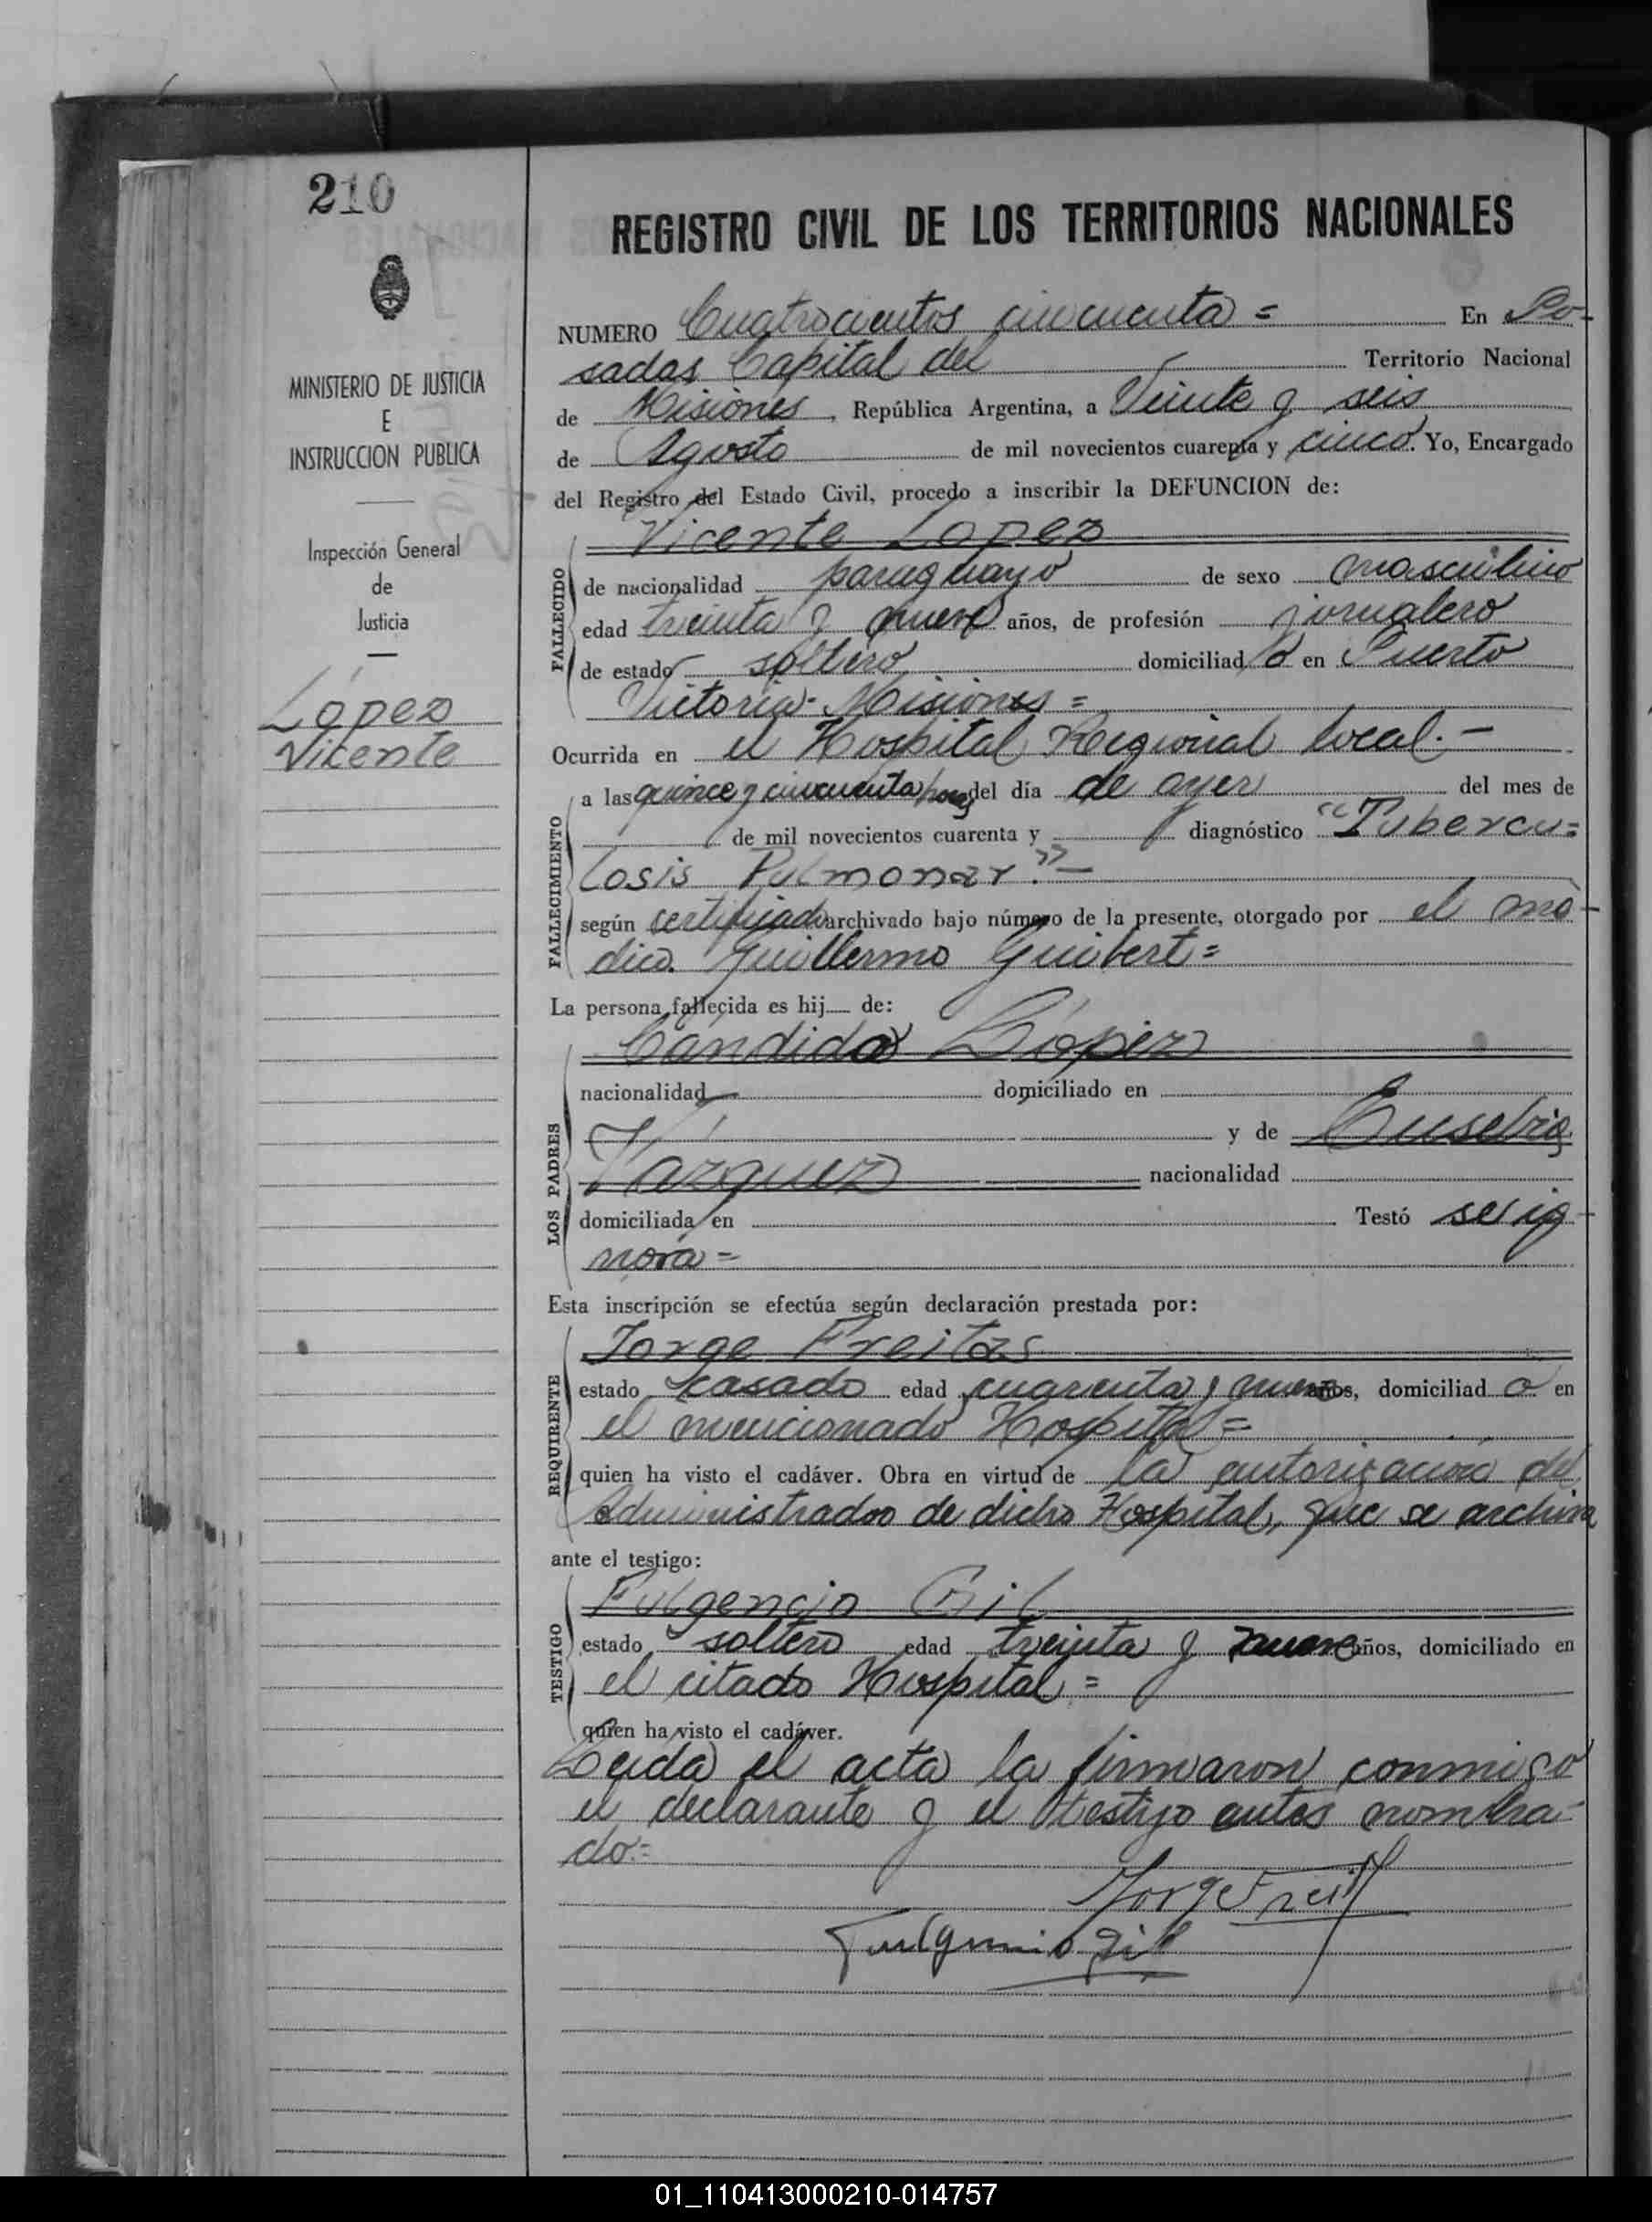 210
MINISTERIO DE JUSTICIA
E
INSTRUCCION PUBLICA
Inspección General
de
Justicia
López
Vicente
REGISTRO CIVIL DE LOS TERRITORIOS NACIONALES
NUMERO Cuatrocientos cincuenta = En Po-
sadas Capital del Territorio Nacional
de Misiones, República Argentina, a Veinte y seis
de Agosto de mil novecientos cuarenta y cinco. Yo, Encargado
del Registro del Estado Civil, procedo a inscribir la DEFUNCION de:
Vicente Lopez
FALLECIDO
de nacionalidad paraguayo de sexo masculino
edad treinta y nueve años, de profesión jornalero
de estado soltero domiciliado en Puerto
Victoria - Misiones =
Ocurrida en el Hospital Regional local. -
FALLECIMIENTO
a las quince y cincuenta horas del día de ayer del mes de
de mil novecientos cuarenta y diagnóstico "Tubercu=
losis Pulmonar". -
según certificado archivado bajo número de la presente, otorgado por el mé-
dico Guillermo Guibert =
La persona fallecida es hij de:
LOS PADRES
Cándido López
nacionalidad domiciliado en
y de Eusebia
Vázquez nacionalidad
domiciliada en Testó se ig-
nora =
Esta inscripción se efectúa según declaración prestada por:
REQUIRENTE
Jorge Freitas
estado casado edad cuarenta y nueve años, domiciliado en
el mencionado Hospital =
quien ha visto el cadáver. Obra en virtud de la autorización del
Administrador de dicho Hospital, que se archiva
ante el testigo:
TESTIGO
Fulgencio Gil
estado soltero edad treinta y nueve años, domiciliado en
el citado Hospital =
quien ha visto el cadáver.
Leida el acta la firmaron conmigo
el declarante y el testigo antes nombra-
do =
Jorge Freit
Fulgencio Gil
01_110413000210-014757